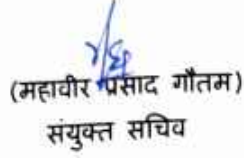 (महावीर प्रसाद गौतम)
संयुक्त सचिव